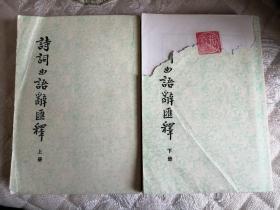 詩詞曲語辭匯釋
上册
詞曲語辭匯釋
下册